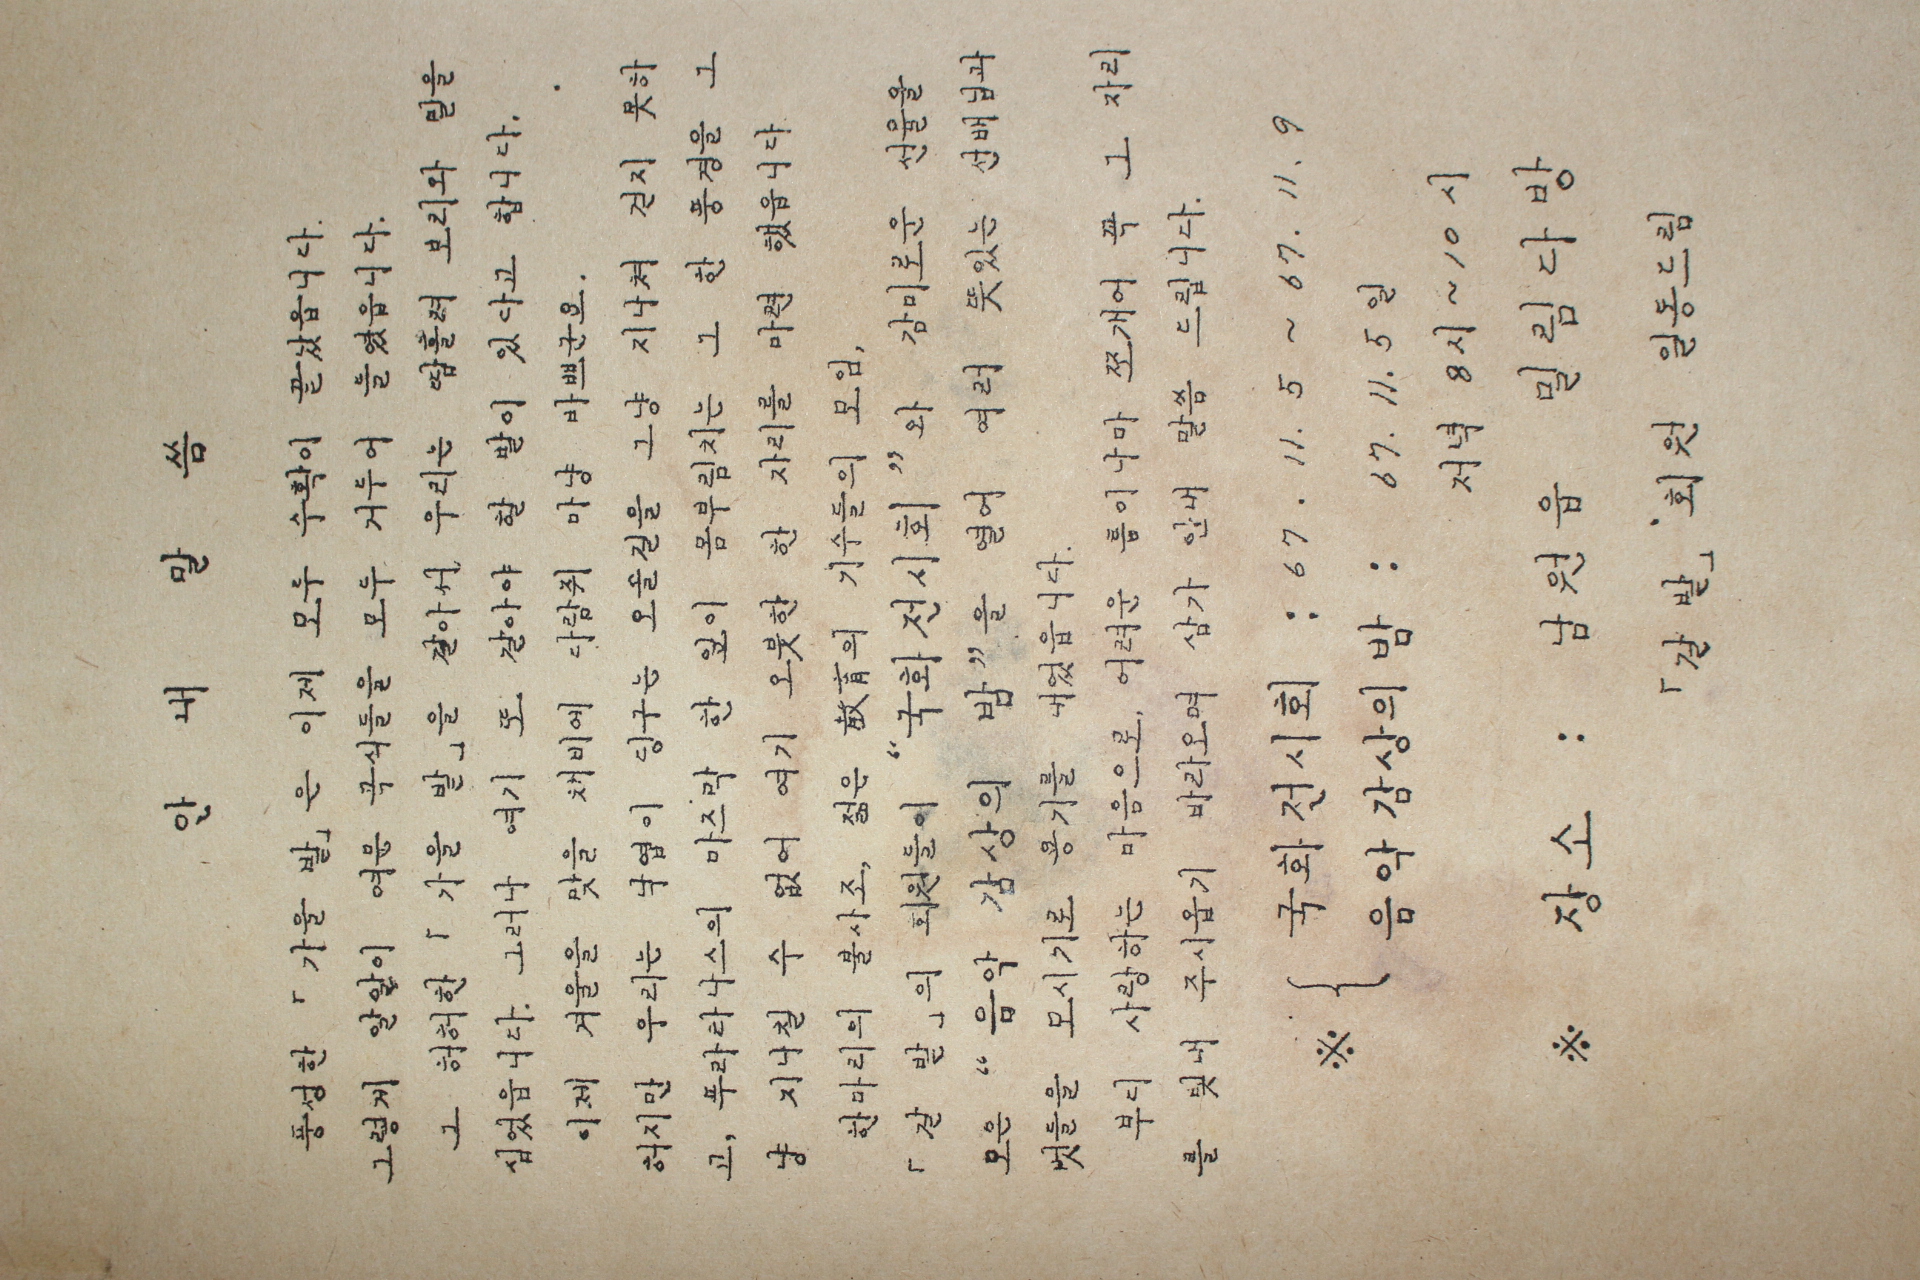 안 내 말 씀
풍성한 「가을 밭」은 이제 모두 수확이 끝났읍니다.
그렇게 알알이 여문 곡식들을 모두 거두어 들였읍니다.
그 허허한 「가을 밭」을 갈아서 우리는 땀흘려 보리와 밀을
심었읍니다. 그러나 여기 또 갈아야 할 밭이 있다고 합니다.
이제 겨울을 맞을 채비에 다람쥐 마냥 바쁘군요.
허지만 우리는 낙엽이 딩구는 오솔길을 그냥 지나쳐 걷지 못하
고, 푸라타나스의 마즈막 한 잎이 몸부림치는 그 한 풍경을 그
냥 지나칠 수 없어 여기 오붓한 한 자리를 마련 했읍니다
한마리의 불사조, 젊은 敎育의 기수들의 모임,
「갈 밭」의 회원들이 “국화전시회” 와 감미로운 선율을
모은 “음악 감상의 밤”을 열어 여러 뜻있는 선배님과
벗들을 모시기로 용기를 내었읍니다.
부디 사랑하는 마음으로, 어려운 틈이나마 쪼개어 꼭 그 자리
를 빛내 주시옵기 바라오며 삼가 안내 말씀 드립니다.
※ { 국화전시회 : 67. 11. 5 ~ 67. 11. 9
음악감상의밤 : 67. 11. 5일
저녁 8시~10시
※ 장소 : 남원읍 밀림다방
「갈 밭」 회원 일동드림